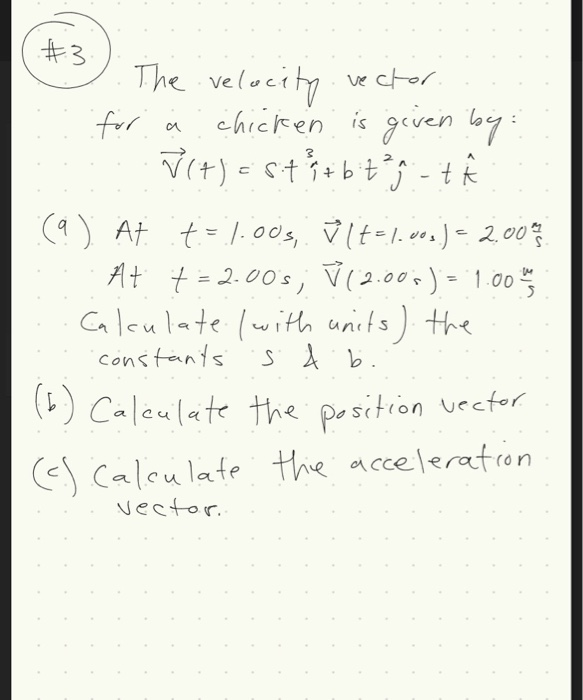 #3
The velocity vector
for a chicken is given by:
V⃗(t) = st³î + bt²ĵ - tk̂
(a) At t = 1.00s, V⃗(t=1.00s) = 2.00 m/s
At t = 2.00s, V⃗(2.00s) = 1.00 m/s
Calculate (with units) the
constants s & b.
(b) Calculate the position vector
(c) Calculate the acceleration
vector.